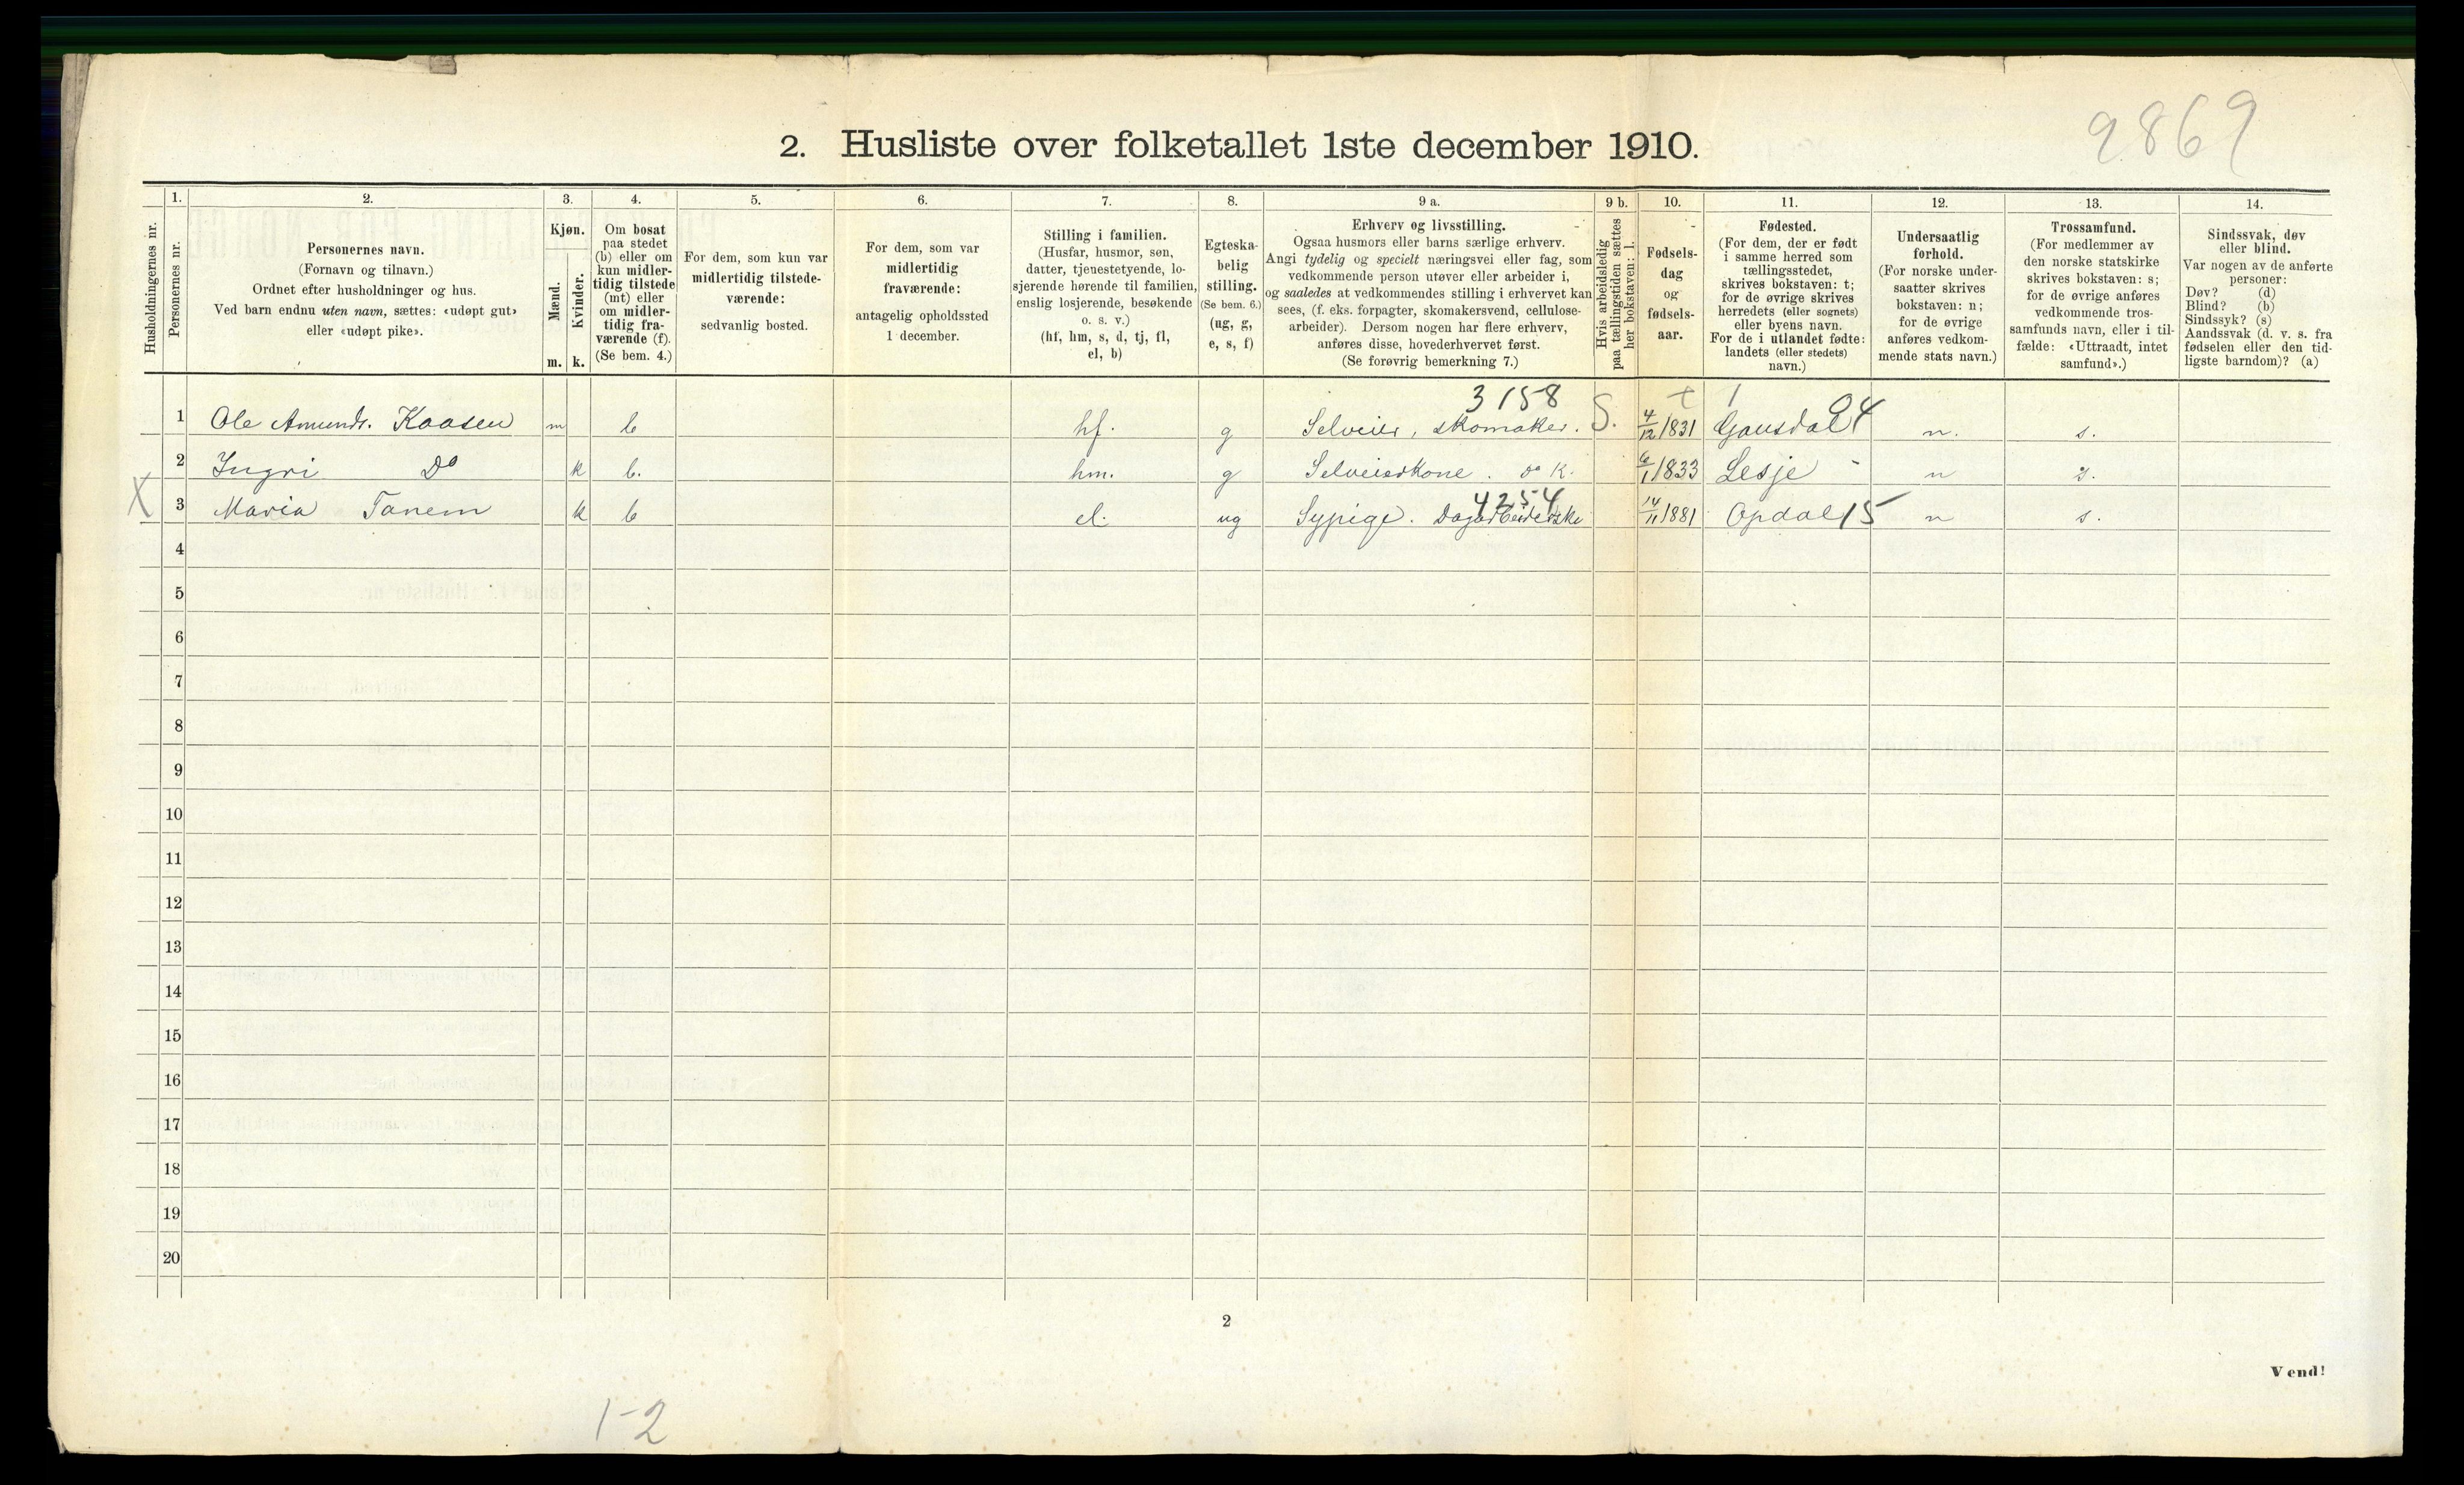 9869
2. Husliste over folketallet 1ste december 1910.
Husholdningernes nr.
1.
Personernes nr.
2.
Personernes navn.
(Fornavn og tilnavn.)
Ordnet efter husholdninger og hus.
Ved barn endnu uten navn, sættes: «udøpt gut»
eller «udøpt pike».
3.
Kjøn.
Mænd.
Kvinder.
m. k.
4.
Om bosat
paa stedet
(b) eller om
kun midler-
tidig tilstede
(mt) eller
om midler-
tidig fra-
værende (f).
(Se bem. 4.)
5.
For dem, som kun var
midlertidig tilstede-
værende:
sedvanlig bosted.
6.
For dem, som var
midlertidig
fraværende:
antagelig opholdssted
1 december.
7.
Stilling i familien.
(Husfar, husmor, søn,
datter, tjenestetyende, lo-
sjerende hørende til familien,
enslig losjerende, besøkende
o. s. v.)
(hf, hm, s, d, tj, fl,
el, b)
8.
Egteska-
belig
stilling.
(Se bem. 6.)
(ug, g,
e, s, f)
9 a.
Erhverv og livsstilling.
Ogsaa husmors eller barns særlige erhverv.
Angi tydelig og specielt næringsvei eller fag, som
vedkommende person utøver eller arbeider i,
og saaledes at vedkommendes stilling i erhvervet kan
sees, (f. eks. forpagter, skomakersvend, cellulose-
arbeider). Dersom nogen har flere erhverv,
anføres disse, hovederhvervet først.
(Se forøvrig bemerkning 7.)
9 b.
Hvis arbeidsledig
paa tællingstiden sættes
her bokstaven: l.
10.
Fødsels-
dag
og
fødsels-
aar.
11.
Fødested.
(For dem, der er født
i samme herred som
tællingsstedet,
skrives bokstaven: t;
for de øvrige skrives
herredets (eller sognets)
eller byens navn.
For de i utlandet fødte:
landets (eller stedets)
navn.)
12.
Undersaatlig
forhold.
(For norske under-
saatter skrives
bokstaven: n;
for de øvrige
anføres vedkom-
mende stats navn.)
13.
Trossamfund.
(For medlemmer av
den norske statskirke
skrives bokstaven: s;
for de øvrige anføres
vedkommende tros-
samfunds navn, eller i til-
fælde: «Uttraadt, intet
samfund».)
14.
Sindssvak, døv
eller blind.
Var nogen av de anførte
personer:
Døv? (d)
Blind? (b)
Sindssyk? (s)
Aandssvak (d. v. s. fra
fødselen eller den tid-
ligste barndom)? (a)
3158 t 1 04
1 Ole Amunds. Kaasen m b hf. g Selveier, skomaker. S. 4/12 1831 Gausdal n. s.
2 Ingri Do k b. hm. g Selveierkone. do K. 6/1 1833 Lesje - n s.
4254
X 3 Maria Tanem k b el. ug Sypige. Dagarbeiderske 14/11 1881 Opdal 15 n s.
4
5
6
7
8
9
10
11
12
13
14
15
16
17
18
19
20
2
Vend!
1-2